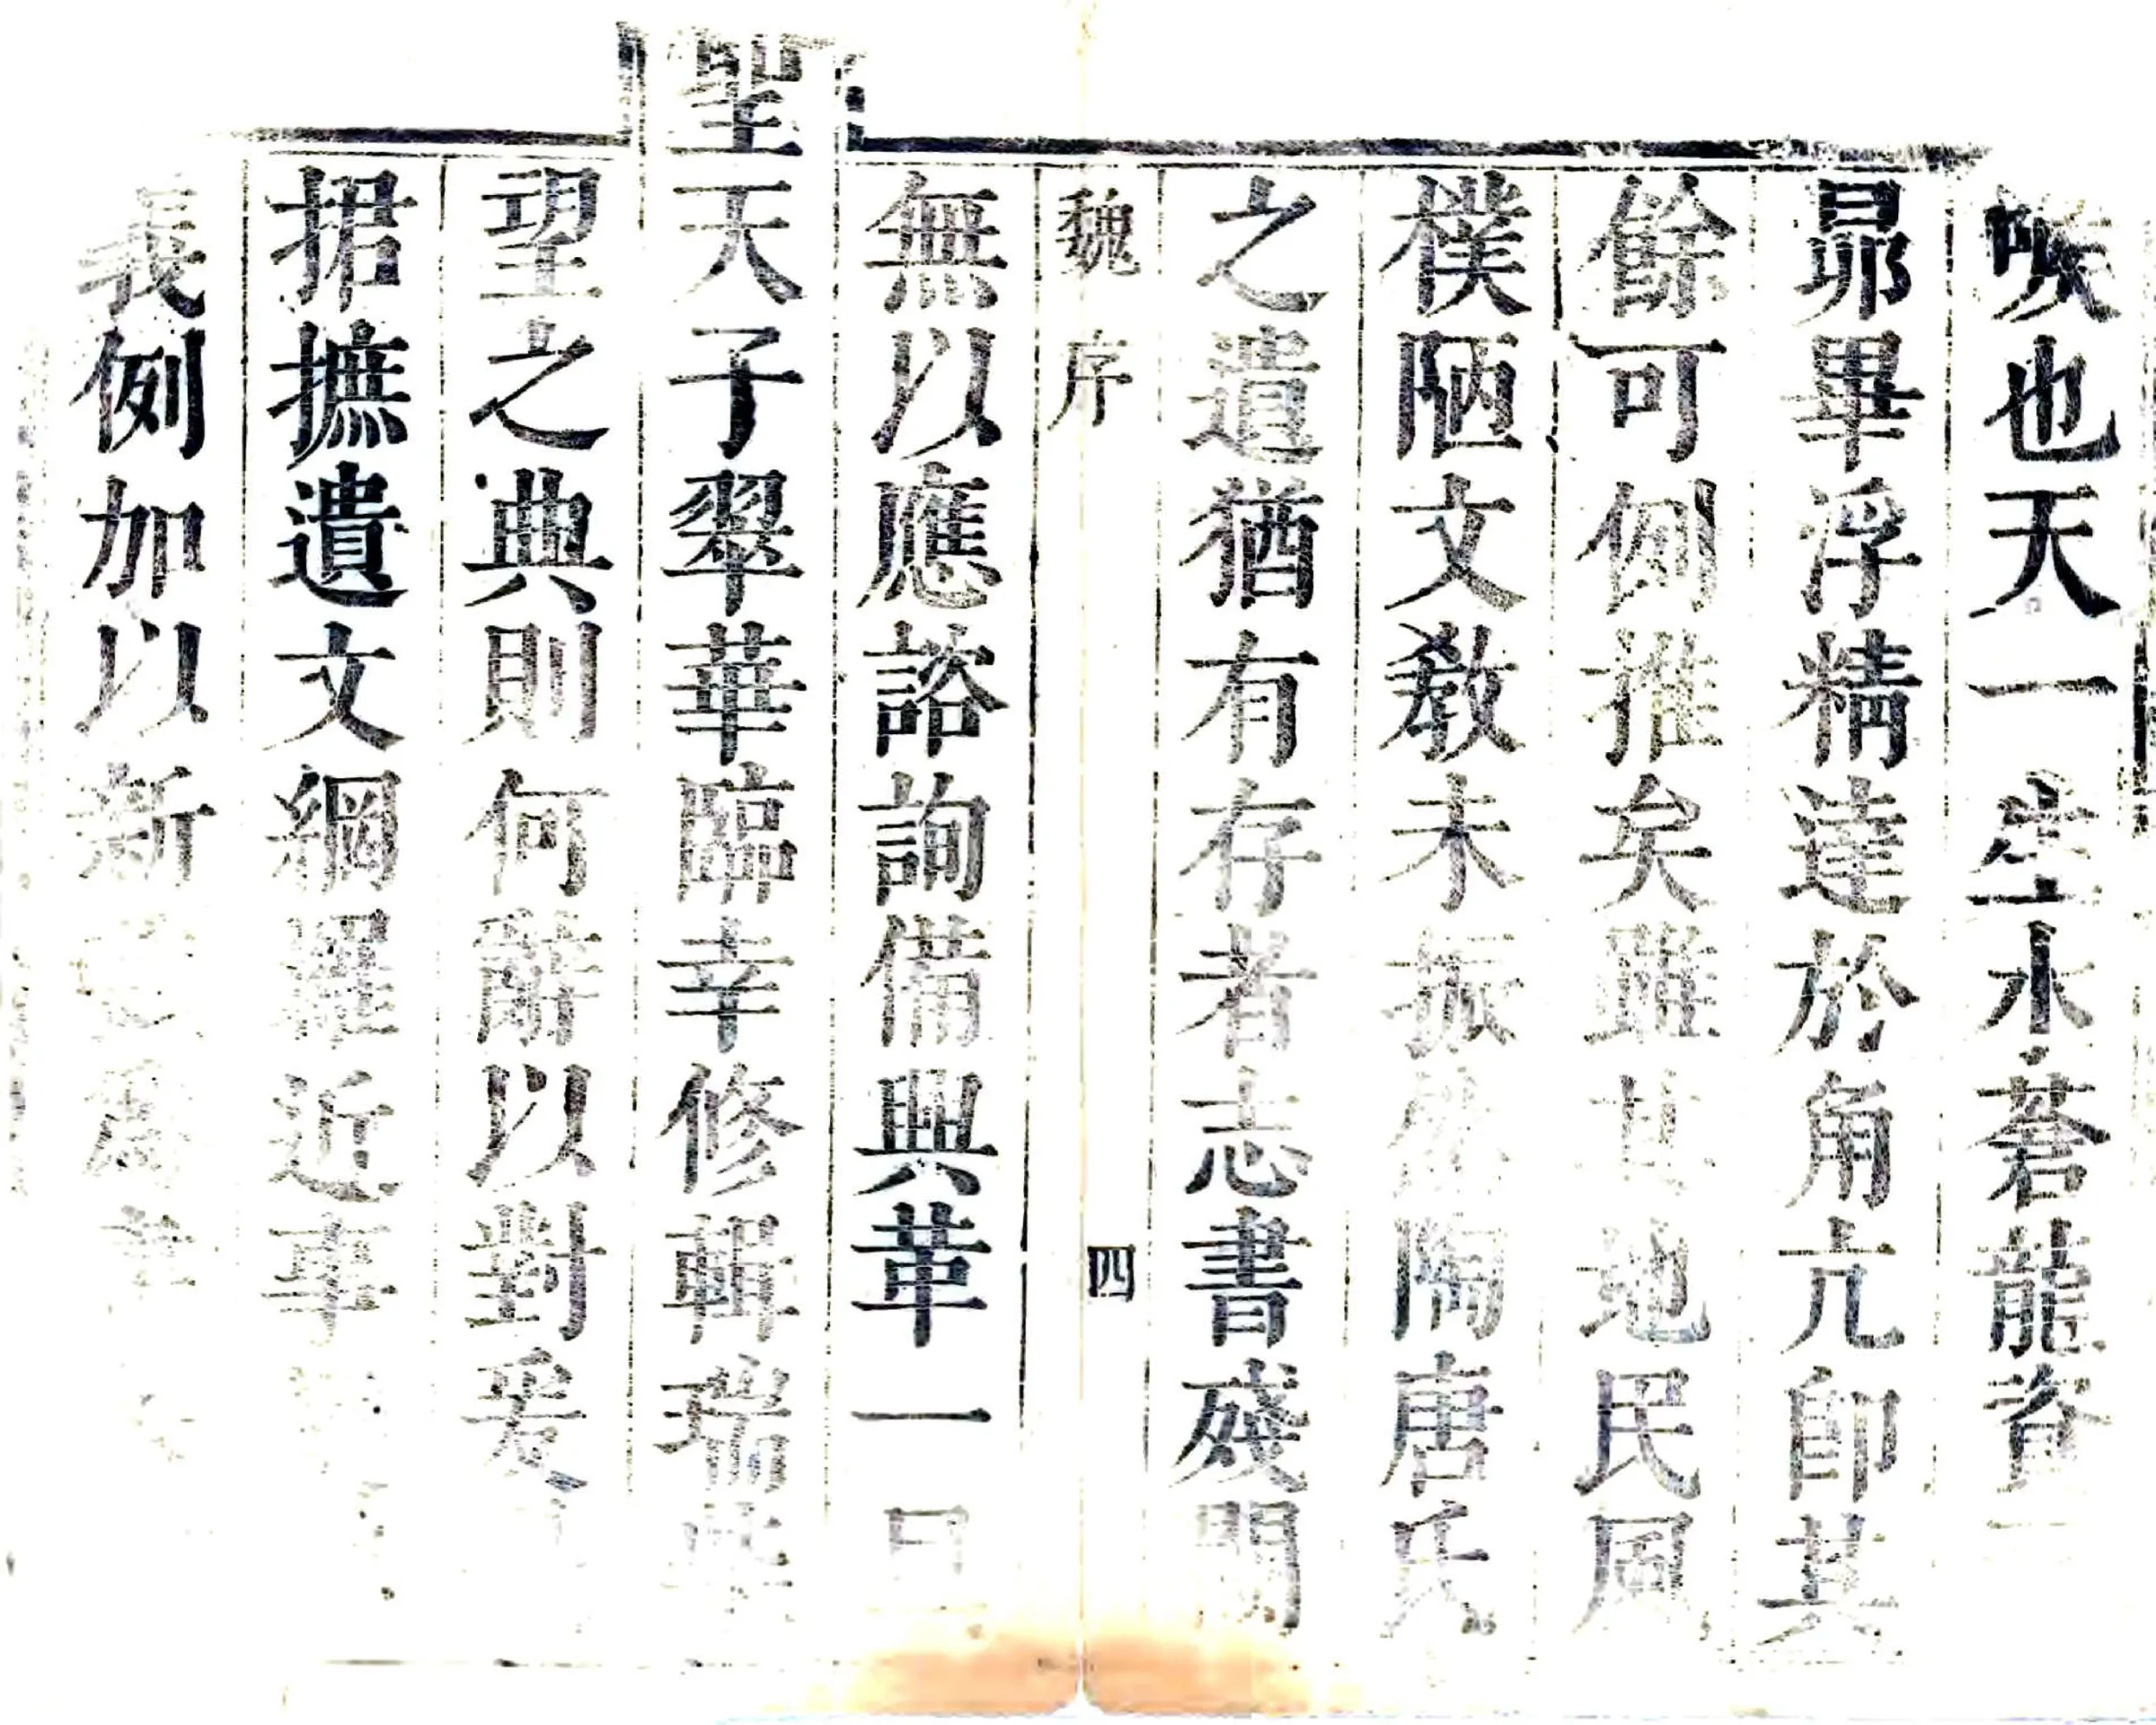 喉也天一生水蒼龍資
昴畢浮精達於角亢卽其
餘可例推矣雖其地民風
樸陋文教未振然陶唐氏
之遺猶有存者志書殘闕
魏序 四
無以應諮詢備興革一日
聖天子翠華臨幸修輯瑞
望之典則何辭以對爰
捃摭遺文網羅近事
義例加以新